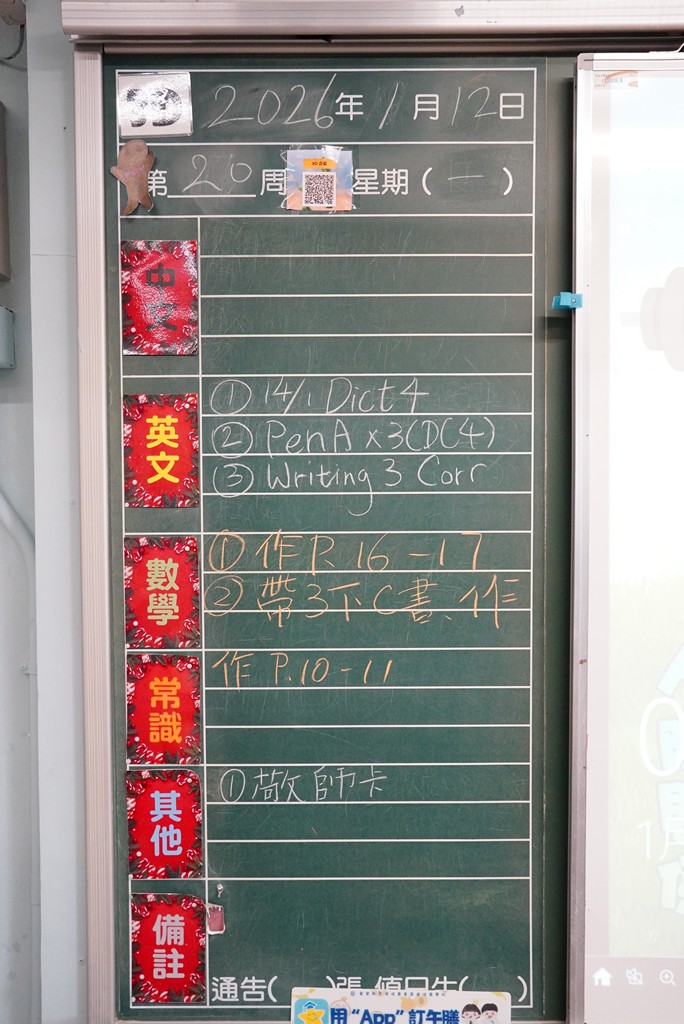 3D 2026年1月12日
第20周 星期(一)
中文
英文
① 14/1 Dict 4
② PenA x3(DC4)
③ Writing 3 Corr
數學
① 作P.16-17
② 帶3下C書、作
常識
作 P.10-11
其他
① 敬師卡
備註
通告( )張 值日生( )
用“App”訂午膳